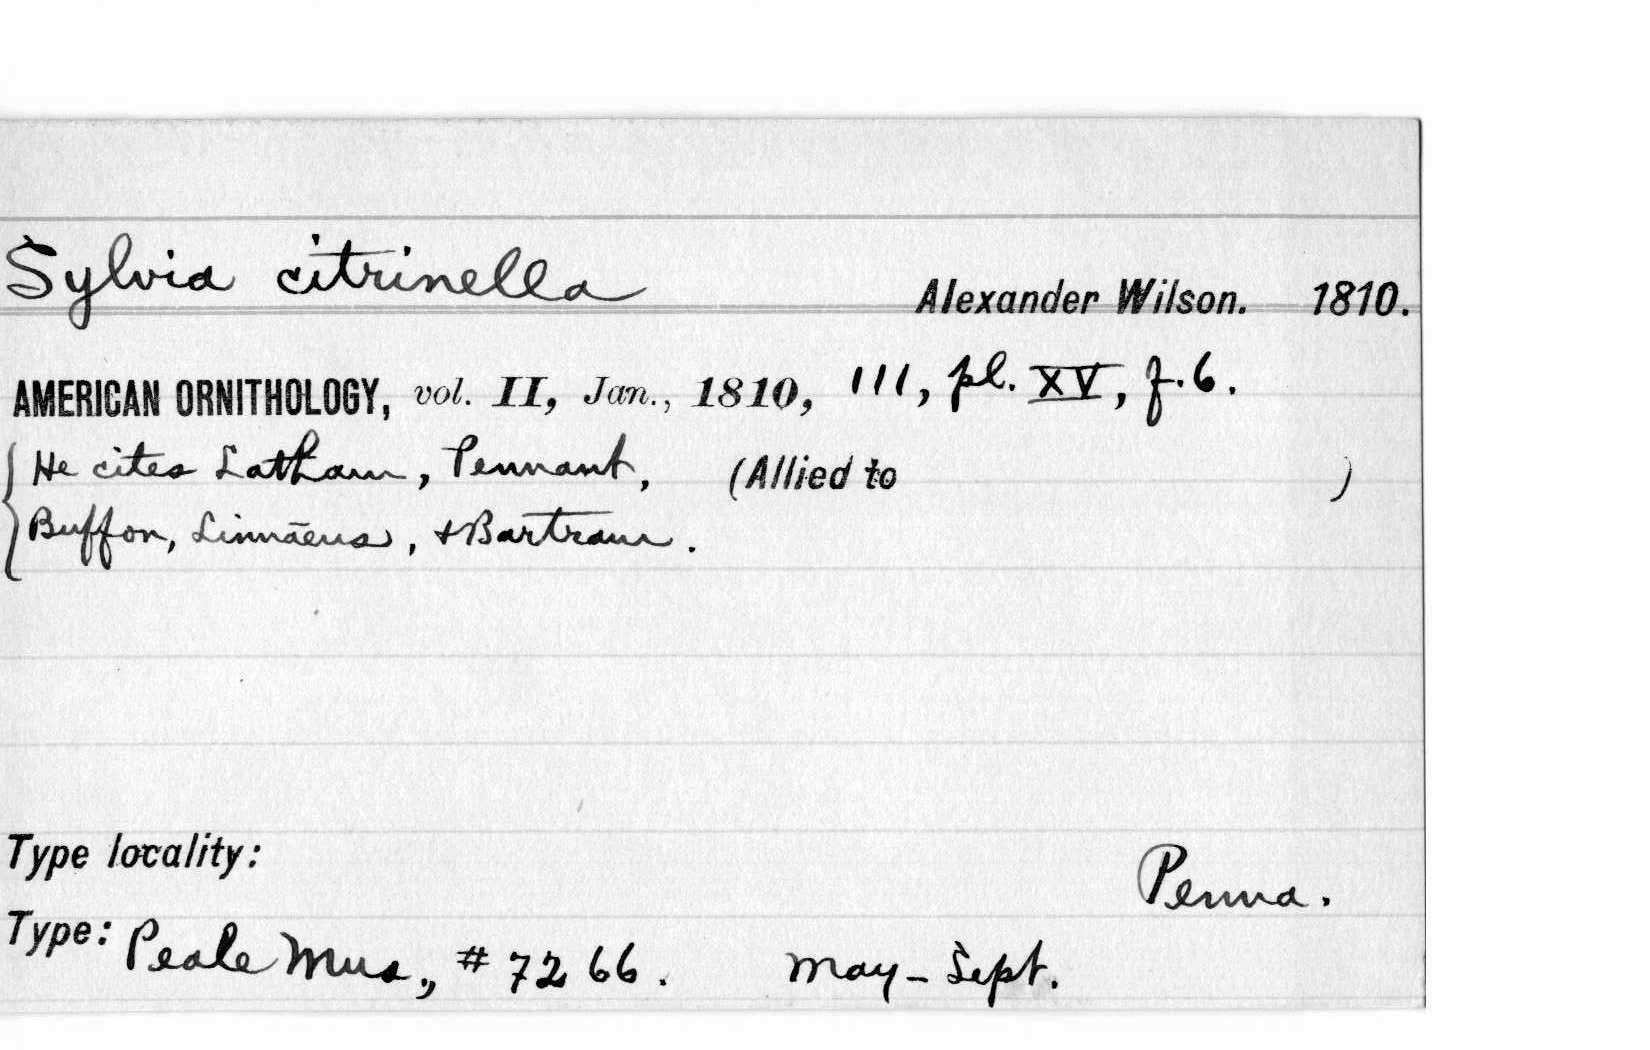 Sylvia citrinella Alexander Wilson. 1810.
AMERICAN ORNITHOLOGY, vol. II, Jan., 1810, 111, pl. XV, f. 6.
He cites Latham, Pennant, (Allied to )
Buffon, Linnaeus, + Bartram.
Type locality:
Penna.
Type: Peale Mus., # 7266. May - Sept.